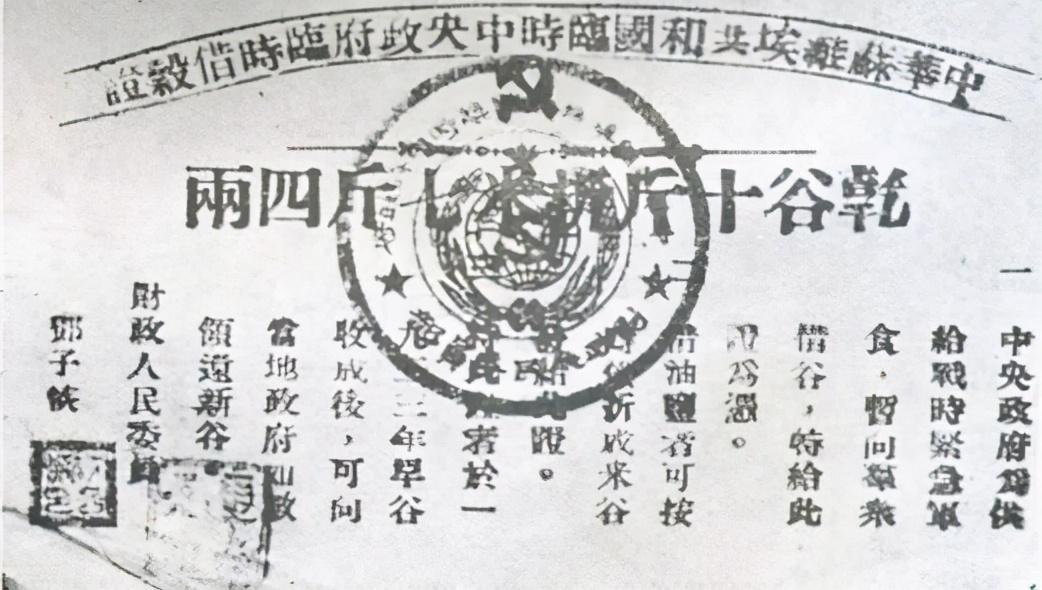 中華蘇維埃共和國臨時中央政府臨時借穀證
乾谷十斤折米七斤四兩
一
中央政府爲供
給戰時緊急軍
食，暫向羣衆
借谷，特給此
證爲憑。
借油鹽者可按
折成米谷
給此證。
者於一
九三三年早谷
收成後，可向
當地政府如數
領還新谷。
財政人民委員
鄧子恢